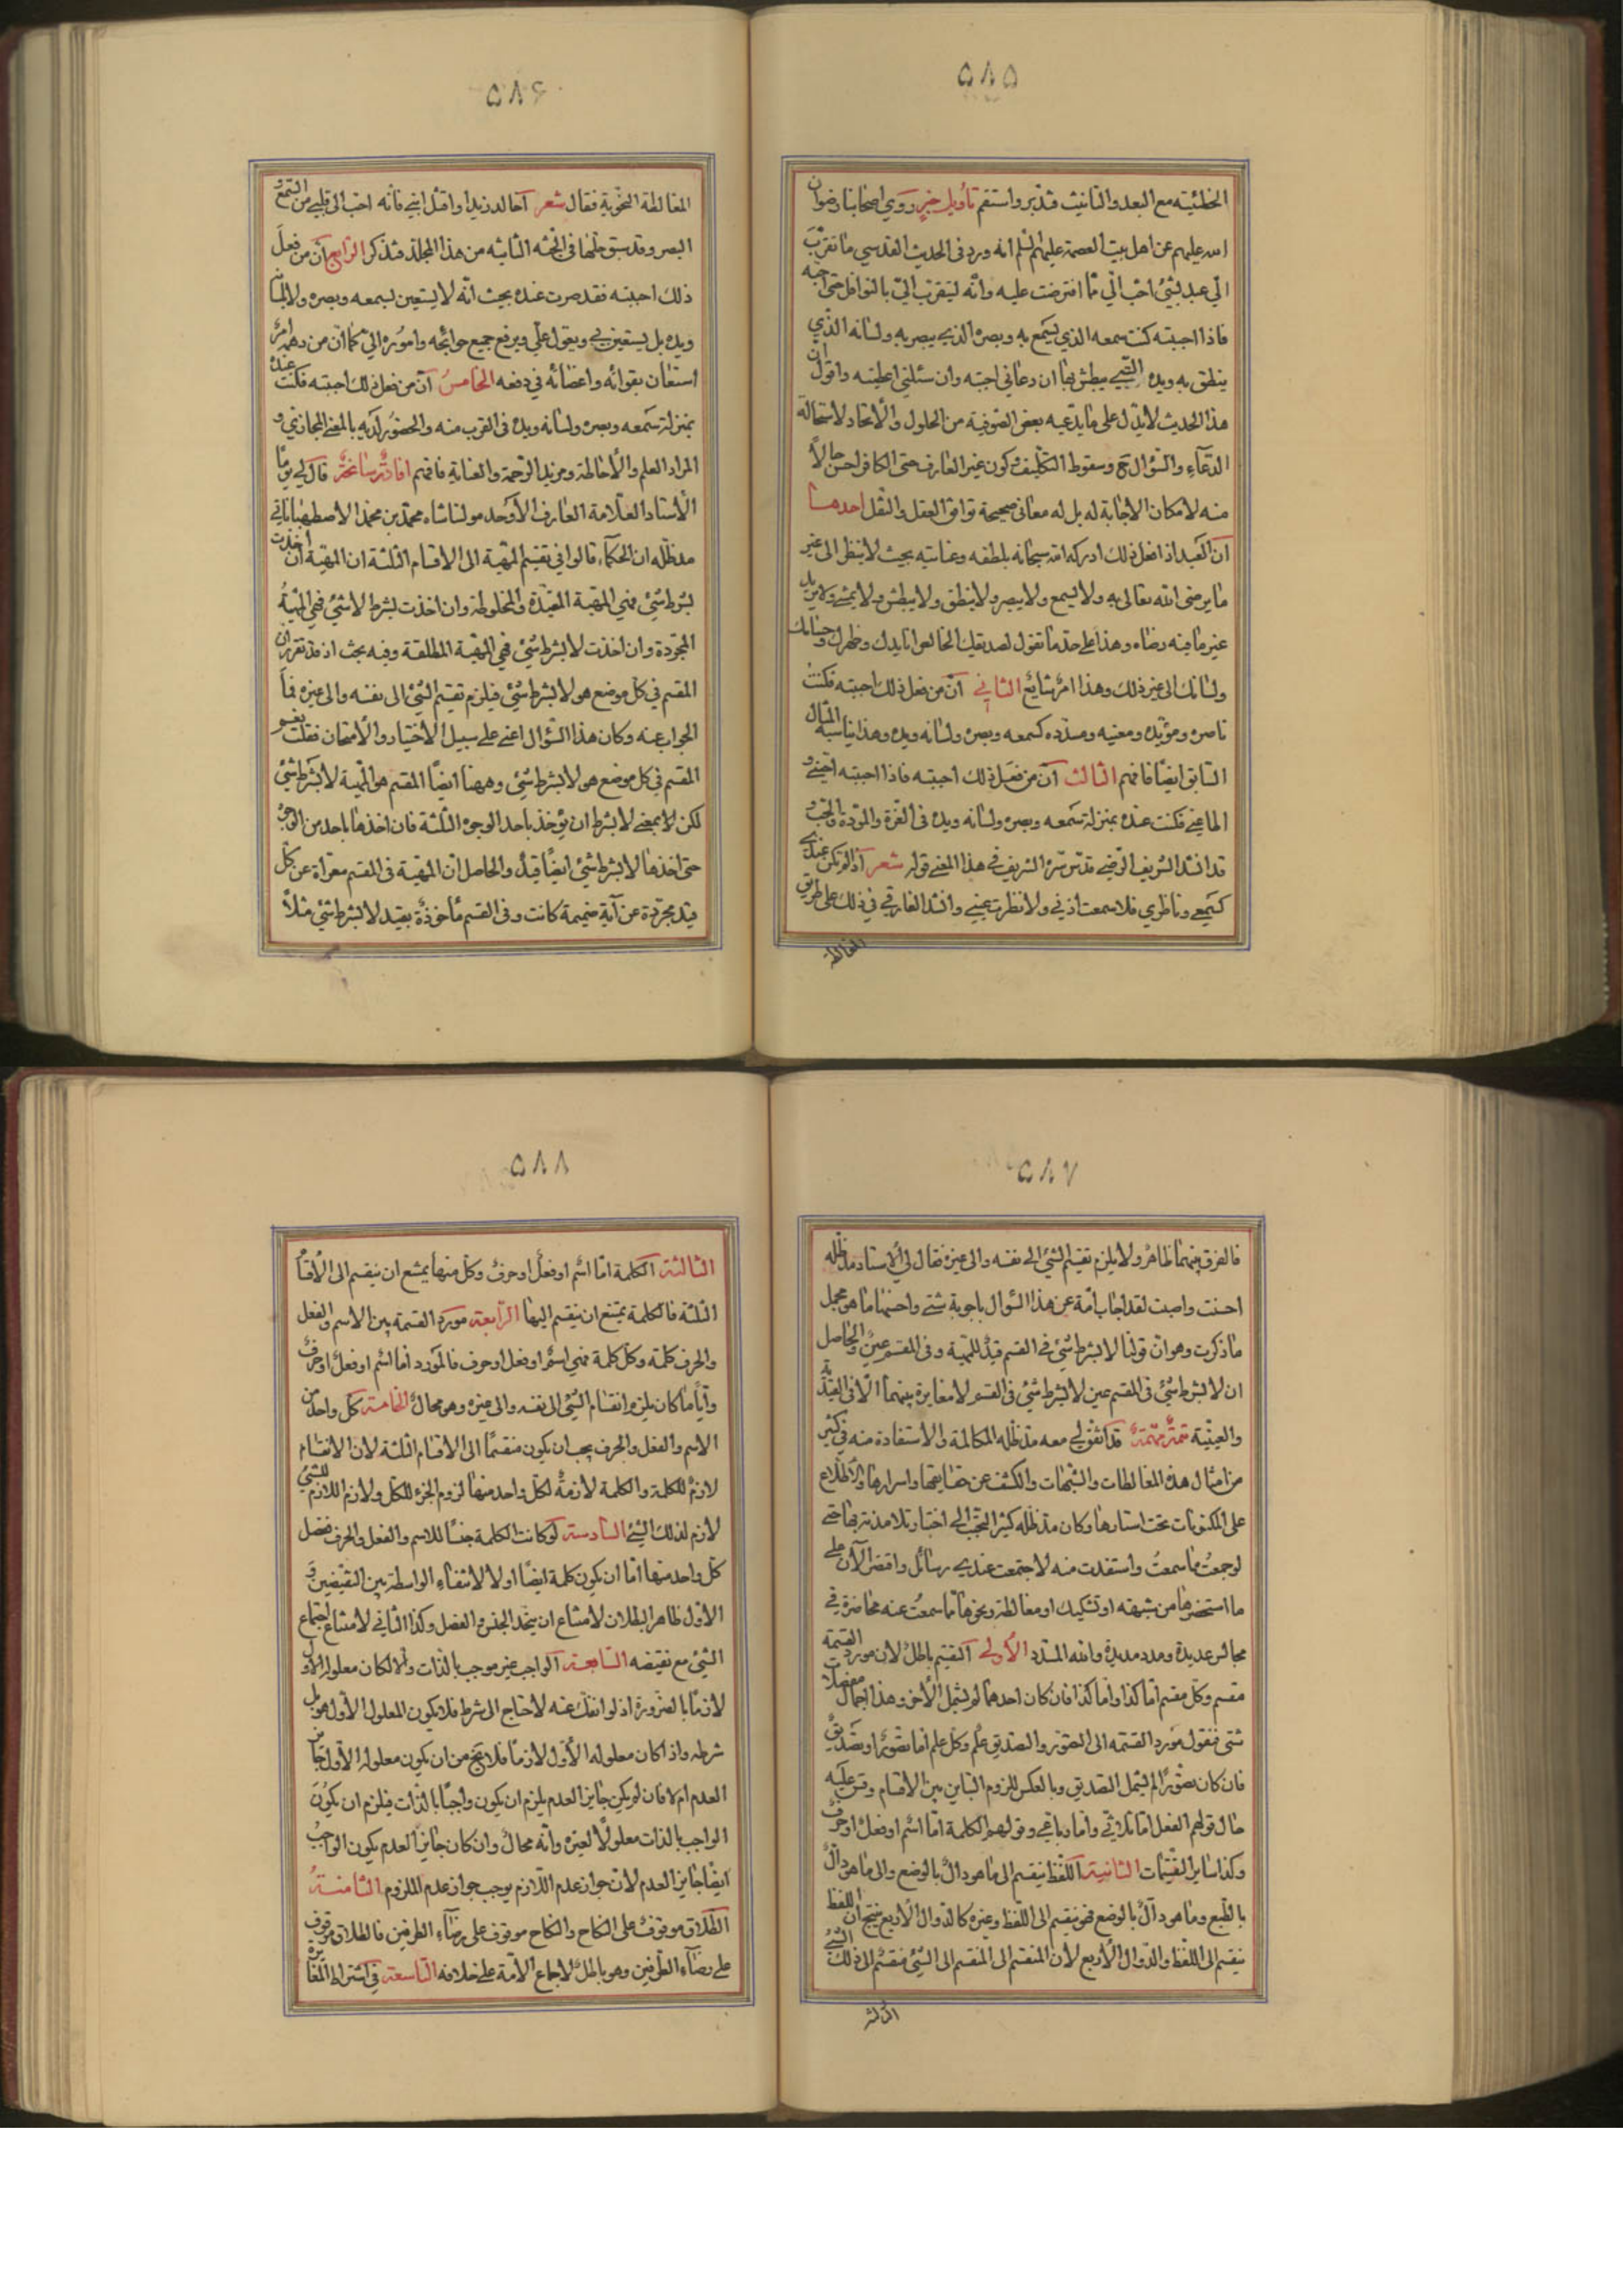 ٥٨٥
الخطيئة مع البعد والتأنيث فتدبر واستقم تأويل خبر وروى اصحابنا رضوان
الله عليهم عن اهل بيت العصمة عليهم السلم انه ورد في الحديث القدسي ما تقرب
الي عبد بشئ احب الي مما افترضت عليه وانه ليتقرب الي بالنوافل حتى احبه
فاذا احببته كنت سمعه الذي يسمع به وبصره الذي يبصر به ولسانه الذي
ينطق به ويده التي يبطش بها ان دعاني اجبته وان سئلني اعطيته واقول ان
هذا الحديث لا يدل على ما يدعيه بعض الصوفية من الحلول والاتحاد لاستحالة
الدعاء والسؤال ح وسقوط التكليف وكون غير العارف حتى الكافر احسن حالاً
منه لامكان الاجابة له بل له معانى صحيحة توافق العقل والنقل احدها
ان العبد اذا فعل ذلك ادركه الله سبحانه بلطفه وعنايته بحيث لا ينظر الى غير
ما يرضى الله تعالى به ولا يسمع ولا يبصر ولا ينطق ولا يبطش ولا يمشي ولا يريد
غير ما فيه رضاه وهذا على حد ما تقول لصديقك الخالص انا يدك وظهرك وجنانك
ولسانك الى غير ذلك وهذا امر شايع الثاني ان من فعل ذلك احببته فكنت
ناصره ومؤيده ومعينه ومسدده كسمعه وبصره ولسانه ويده وهذا يناسبه المثال
السابق ايضاً فافهم الثالث ان من فعل ذلك احببته فاذا احببته احبني و
اطاعني فكنت عنده بمنزلة سمعه وبصره ولسانه ويده في العزة والمودة والحب و
قد انشد الشريف الرضي قدس سره الشريف في هذا المعنى قوله شعر اذا لم تكن عندي
كسمعي وناظري فلا سمعت اذني ولا نظرت عيني وانشد الفارقي في ذلك على طريق
المغالطة
٥٨۶
المغالطة النحوية فقال شعر اخالد زيدا واقتل ابني فانه احب الى قلبي من السمع و
البصر وقد سبق حلها في الجثه الثانيه من هذا المجلد فتذكر الرابع ان من فعل
ذلك احببته فقد صرت عنده بحيث انه لا يستعين بسمعه وبصره ولا لسانه
ويده بل يستعين بي ويعول علي ويرفع جميع حوائجه واموره الي كما ان من دهمه امر
استعان بقوائه واعضائه في دفعه الخامس ان من فعل ذلك احببته فكنت عنده
بمنزلة سمعه وبصره ولسانه ويده في القرب منه والحضور لديه بالمعنى المجازي و
المراد العلم والاحاطة ومزيد الرحمة والعناية فافهم افادة سانحة قال لي يوما
الاستاد العلامة العارف الاوحد مولنا شاه محمد بن محمد الاصطهباناتي
مد ظله ان الحكماء قالوا في تقسيم المهية الى الاقسام الثلثة ان المهية ان اخذت
بشرط شئ فهي المهية المقيدة والمخلوطة وان اخذت بشرط لا شئ فهي المهية
المجردة وان اخذت لا بشرط شئ فهي المهية المطلقة وفيه بحث اذ قد تقرر ان
المقسم في كل موضع هو لا بشرط شئ فيلزم تقسيم الشئ الى نفسه والى غيره فما
الجواب عنه وكان هذا السؤال اعني على سبيل الاختبار والامتحان فقلت نعم
المقسم في كل موضع هو لا بشرط شئ وههنا ايضاً المقسم هو المهية لا بشرط شئ
لكن لا بمعنى لا بشرط ان يؤخذ باحد الوجوه الثلثة فان اخذها باحد من الوجوه
حتى اخذها لا بشرط شئ ايضاً قيد والحاصل ان المهية في المقسم معراة عن كل
قيد مجردة عن اية ضميمة كانت وفي القسم مأخوذة بقيد لا بشرط شئ مثلاً
٥٨٧
فالفرق بينهما ظاهر ولا يلزم تقسيم الشئ الى نفسه والى غيره فقال لي الاستاد مد ظله
احسنت واصبت لقد اجاب ائمة عن هذا السؤال باجوبة شتى واحسنها ما هو مجمل
ما ذكرت وهو ان قولنا لا بشرط شئ في القسم قيد للمهية وفي المقسم عين والحاصل
ان لا بشرط شئ في المقسم عين لا بشرط شئ في القسم لا مغايرة بينهما الا في القيدية
والعينية تتمة مهمة قد اتفق لي معه مد ظله المكالمة والاستفادة منه في كثير
من امثال هذه المغالطات والشبهات والكشف عن حقايقها واسرارها والاطلاع
على المكنونات تحت استارها وكان مد ظله كثير التحبب الى اختبار تلامذته بها حتى
لو جمعت ما سمعت واستفدت منه لاجتمعت عندي رسائل واقتصر الان على
ما استحضرها من شبهته او تشكيك او مغالطة ونحوها مما سمعت عنه محاضرة في
مجالس عديدة ومدد مديدة والله المسدد الاولى التقسيم باطل لان مورد القسمة
مقسم وكل مقسم اما كذا واما كذا فان كان احدهما لم يشمل الاخر وهذا اجمال مفصلات
شتى فنقول مورد القسمة الى التصور والتصديق علم وكل علم اما تصور او تصديق
فان كان تصوراً لم يشمل التصديق وبالعكس للزوم التباين بين الاقسام وقس عليه
حال قولهم الفعل اما ثلاثي واما رباعي وقولهم الكلمة اما اسم او فعل او حرف
وكذا ساير التقسيمات الثانية اللفظ ينقسم الى ما هو دال بالوضع والى ما هو دال
بالطبع وما هو دال بالوضع فهو ينقسم الى اللفظ وغيره كالدوال الاربع ينتج ان اللفظ
ينقسم الى اللفظ والدوال الاربع لان المنقسم الى المنقسم الى الشئ منقسم الى ذلك الشئ
الثالثة
٥٨٨
الثالثة الكلمة اما اسم او فعل او حرف وكل منها يمتنع ان ينقسم الى الاقسام
الثلثة فالكلمة يمتنع ان ينقسم اليها الرابعة مورد القسمة بين الاسم والفعل
والحرف كلمة وكل كلمة فهي اسم او فعل او حرف فالمورد اما اسم او فعل او حرف
واياً ما كان يلزم انقسام الشئ الى نفسه والى غيره وهو محال الخامسة كل واحد من
الاسم والفعل والحرف يجب ان يكون منقسماً الى الاقسام الثلثة لان الانقسام
لازم للكلمة والكلمة لازمة لكل واحد منها لزوم الجزء للكل ولازم اللازم للشئ
لازم لذلك الشئ السادسة لو كانت الكلمة جنساً للاسم والفعل والحرف ففصل
كل واحد منها اما ان يكون كلمة ايضاً او لا لانتفاء الواسطة بين النقيضين و
الاول ظاهر البطلان لامتناع ان يتحد الجنس والفصل وكذا الثاني لامتناع اجتماع
الشئ مع نقيضه السابعة الواجب غير موجب بالذات والا لكان معلوله الاول
لازما بالضرورة اذ لو انفك عنه لاحتاج الى شرط فلا يكون المعلول الاول هو بل
شرطه واذا كان معلوله الاول لازماً فلا يخ من ان يكون معلوله الاول جايز
العدم ام لا فان لم يكن جايز العدم يلزم ان يكون واجباً بالذات فيلزم ان يكون
الواجب بالذات معلولاً لغيره وانه محال وان كان جايز العدم يكون الواجب
ايضاً جايز العدم لان جواز عدم اللازم يوجب جواز عدم الملزوم الثامنة
الطلاق موقوف على النكاح والنكاح موقوف على رضاء الطرفين فالطلاق موقوف
على رضاء الطرفين وهو باطل لاجماع الامة على خلافه التاسعة في اشتراط المغايرة